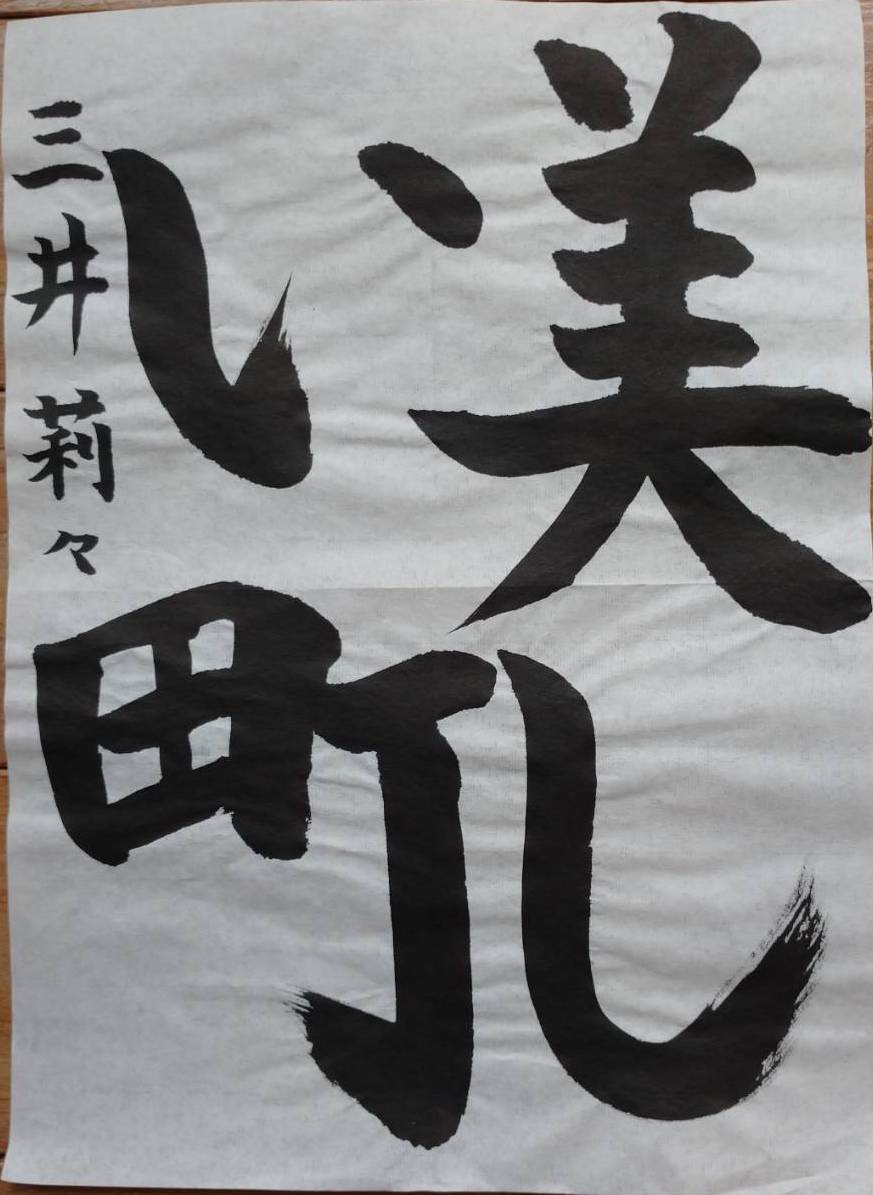 美し
い町
三井莉々